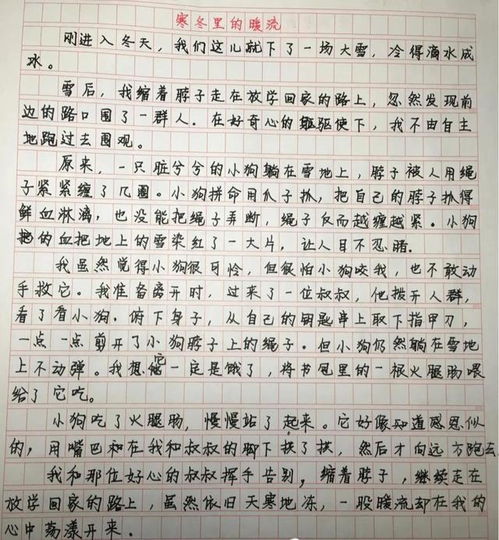 寒冬里的暖流
刚进入冬天，我们这儿就下了一场大雪，冷得滴水成
冰。
雪后，我缩着脖子走在放学回家的路上，忽然发现前
边的路口围了一群人。在好奇心的驱使下，我不由自主
地跑过去围观。
原来，一只脏兮兮的小狗躺在雪地上，脖子被人用绳
子紧紧缠了几圈。小狗拼命用爪子抓，把自己的脖子抓得
鲜血淋漓，也没能把绳子弄断，绳子反而越缠越紧。小狗
的血把地上的雪染红了一大片，让人目不忍睹。
我虽然觉得小狗很可怜，但很怕小狗咬我，也不敢动
手救它。我准备离开时，过来了一位叔叔，他拨开人群，
看了看小狗。俯下身子，从自己的钥匙串上取下指甲刀，
一点一点剪开了小狗脖子上的绳子。但小狗仍然躺在雪地
上不动弹。我想它一定是饿了，将书包里的一根火腿肠喂
给了它吃。
小狗吃了火腿肠，慢慢站了起来。它好像知道感恩似
的，用嘴巴和在我和叔叔的脚下拱了拱，然后才向远方跑去
我和那位好心的叔叔挥手告别，缩着脖子，继续走在
放学回家的路上，虽然依旧天寒地冻，一股暖流却在我的
心中荡漾开来。